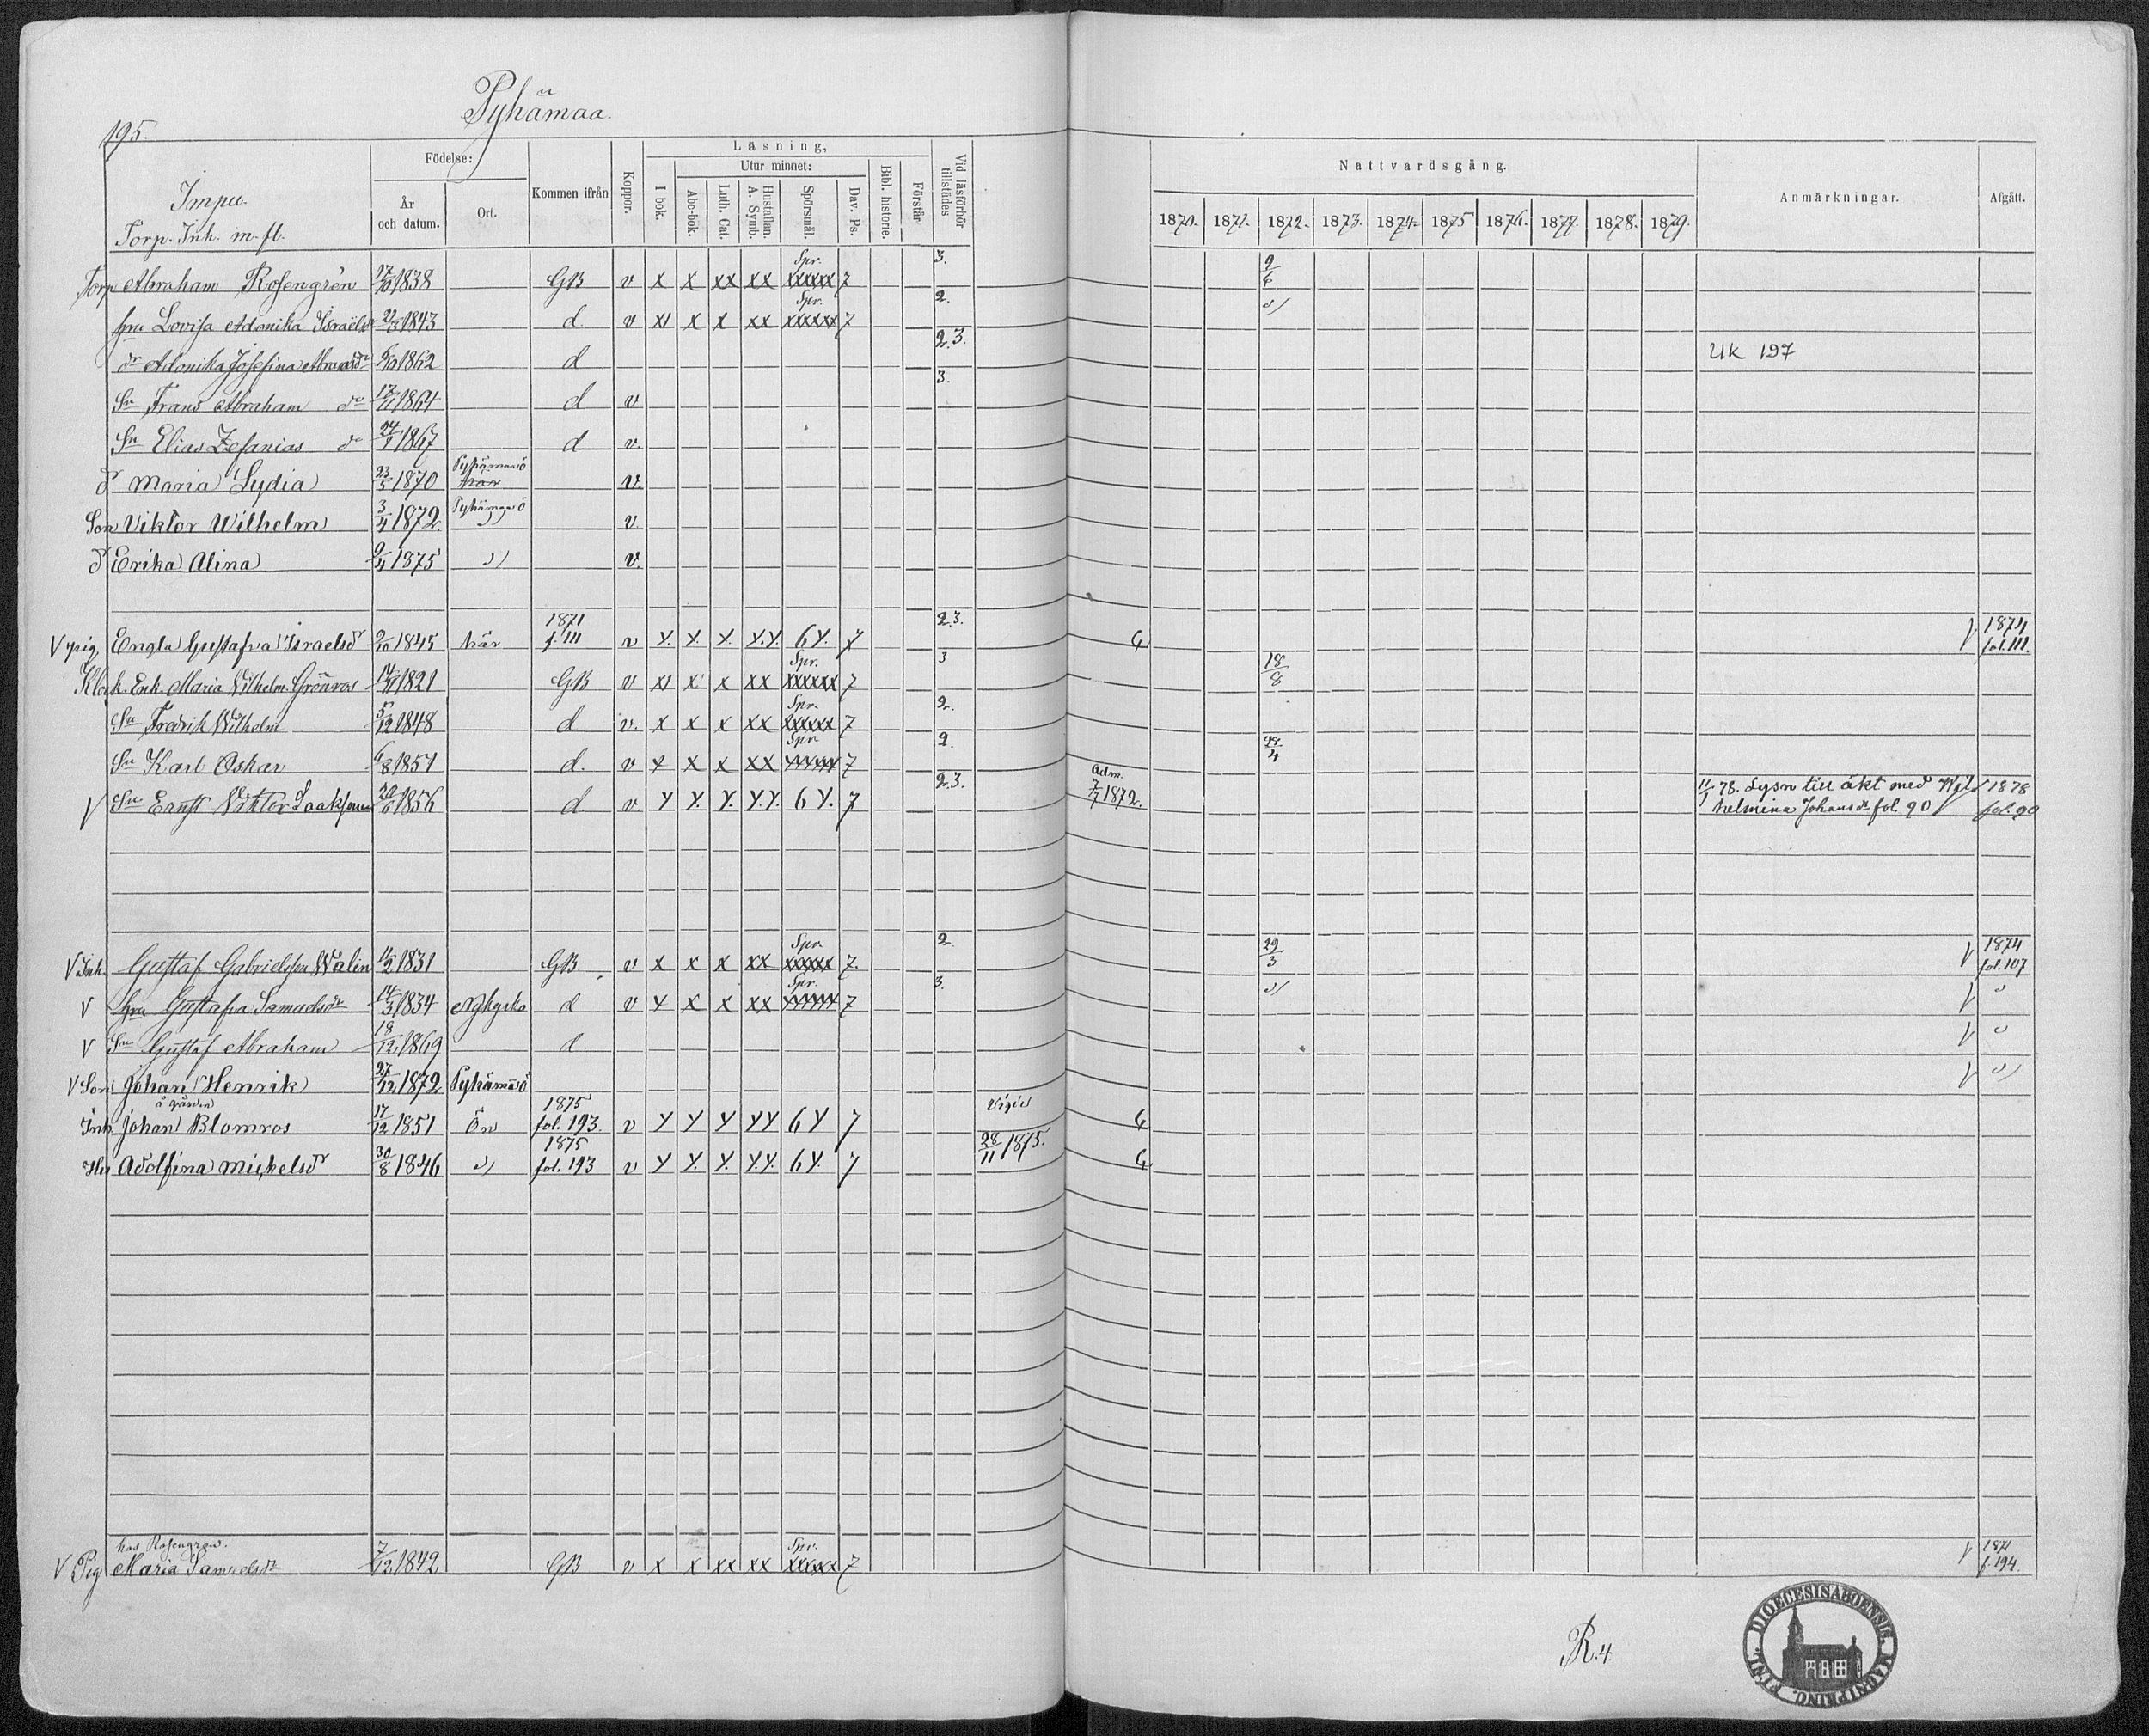 Pyhämaa.
195.
Impu.
Torp. Inh. m. fl.
Födelse:
År och datum.
Ort.
Kommen ifrån
Koppor.
Läsning,
I bok.
Utur minnet:
Abc-bok.
Luth. Cat.
Hustaflan. A. Symb.
Spörsmål.
Dav. Ps.
Bibl. historie.
Förstår
Vid läsförhör tillstädes
Nattvardsgång.
1870. 1871. 1872. 1873. 1874. 1875 1876. 1877. 1878. 1879.
Anmärkningar.
Afgått.
Torp Abraham Rosengrén 17/10 1838 GB v x x xx xx Spr. xxxxx 7 3. 9/6
hu Lovisa Adonika Israelsdr 1843 d. v xi x x xx Spr. xxxxx 7 2. d/
dr Adonika Josefina Abramsdr 1862 d 2.3. Uk 197
Sn Frans Abraham do 17/11 1864 d v 3.
Sn Elias Zefanias do 24/ 1867 d v.
d Maria Lydia 23/3 1870 Pyhämaa ö här v.
Son Viktor Wilhelm 3/4 1872. Pyhämaa ö v
d Erika Alina 9/4 1875 d/ v.
V pig. Engla Gustafva Israelsdr 2/10 1845 här 1871 f. 111 v y. y. y. y.y. 6 y. 7 2.3. 1874 fol. 111.
Klock. Enk. Maria Vilhelm. Grönroos 14/11 1821 GB v xi x x xx Spr. xxxxx 7 3 18/8
Sn Fredrik Wilhelm 5/12 1848 d v. x x x xx Spr. xxxxx 7 2.
Sn Karl Oskar 6/8 1851 d. v x x x xx Spr xxxxx 7 2.
V Sn Ernst Viktor Laaksonen 1856 d v. y y. y. y.y. 6 y. 7 2.3. Adm. 7/7 1872. 11/1 78. Lysn till äkt med Wil 1878
helmina Johansdr fol. 90 fol. 90
V Inh. Gustaf Gabrielsson Walin 11/2 1831 GB. v x x x xx Spr. xxxxx 7. 2. 29/3 1874 fol. 107
V hu Gustafva Samuelsdr 14/3 1834 Nykyrko d v x x x xx Spr. xxxxx 7 3. d/
V Sn Gustaf Abraham 18/12 1869 d
V Son Johan Henrik 27/12 1872. Pyhämaa ö d/
å gården
Inh Johan Blomros 17/12 1851 Ön 1875 fol. 193. v y y y yy 6 y 7 Vigd
Hu Adolfina Mickelsdr 30/8 1846 d/ 1875 fol. 193 v y y. y. y.y. 6 y. 7 28/11 1875.
hos Rosengren.
V Pig Maria Samuelsdr 7/12 1842 GB v x x xx xx Spr. xxxxx 7 1871 f. 194.
R. 4.
DIOECESIS ABOENSIS. MAGNI PRINC. FINL.